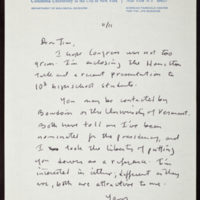 Columbia University in the City of New York | New York, N.Y. 10027
DEPARTMENT OF BIOLOGICAL SCIENCES
11/11
Dear Jim,
I hope Congress was not too
grim. I'm enclosing the Houston
talk and a recent presentation to
10th high school students.
You may be contacted by
Bowdoin or the University of Vermont.
Both have told me I've been
nominated for the presidency, and
I took the liberty of putting
you down as a reference. I'm
interested in either, different as they
are, both are attractive to me.
Yours